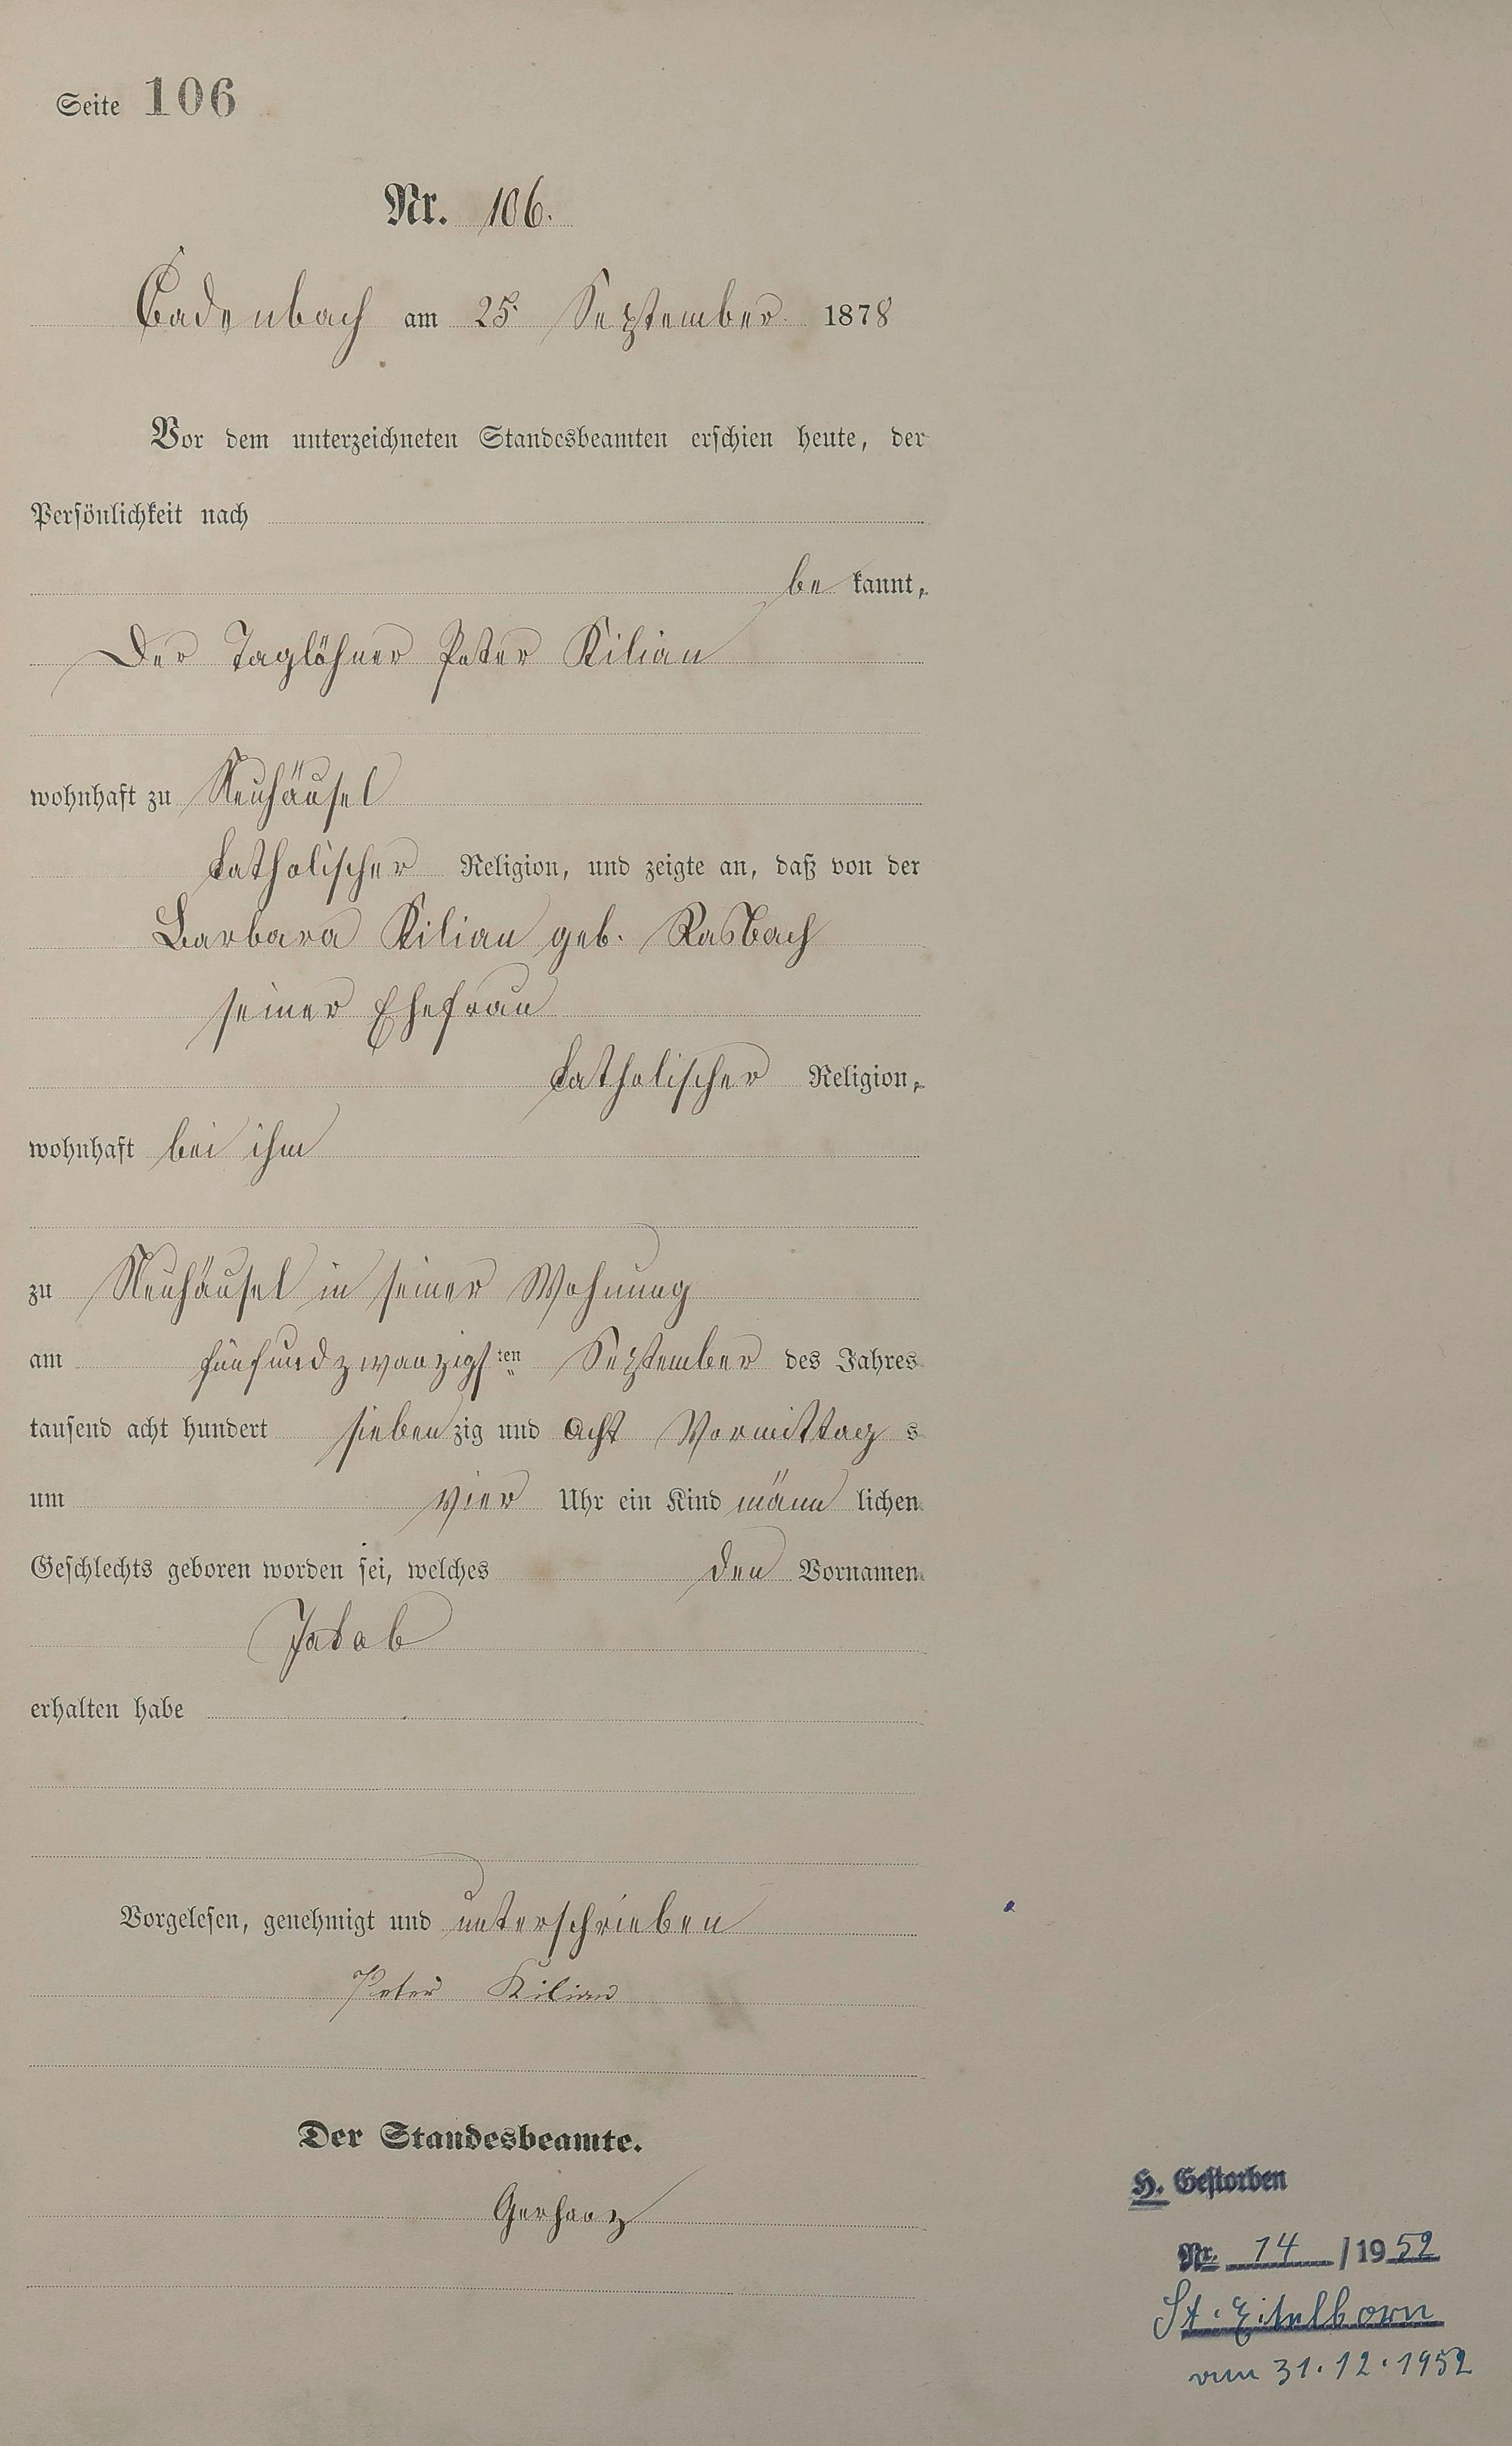 Seite 106
Nr. 106.
Cadenbach am 25. September 1878
Vor dem unterzeichneten Standesbeamten erschien heute, der
Persönlichkeit nach
be kannt,
Der Taglöhner Peter Kilian
wohnhaft zu Neuhäusel
katholischer Religion, und zeigte an, daß von der
Barbara Kilian geb. Rasbach
seiner Ehefrau
katholischer Religion,
wohnhaft bei ihm
zu Neuhäusel in seiner Wohnung
am fünfundzwanzigsten September des Jahres
tausend acht hundert siebenzig und acht Vormittag s
um vier Uhr ein Kind männ lichen
Geschlechts geboren worden sei, welches den Vornamen
Jakob
erhalten habe
Vorgelesen, genehmigt und unterschrieben
Peter Kilian
Der Standesbeamte.
Gerharz
H. Gestorben
Nr. 14 / 1952
St. Eitelborn
vom 31.12.1952